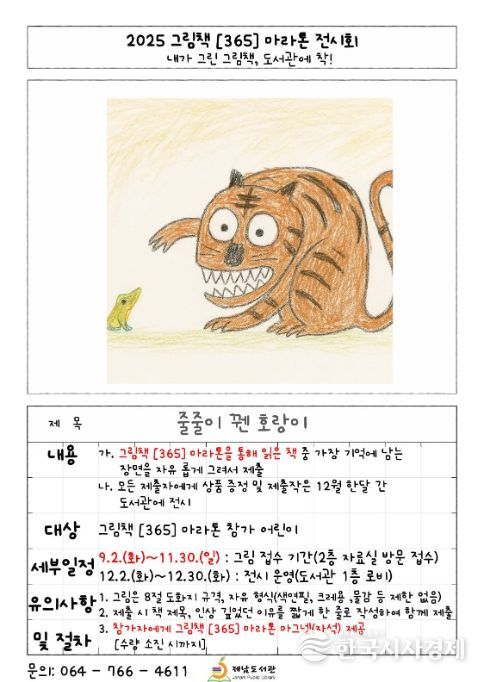 2025 그림책 [365] 마라톤 전시회
내가 그린 그림책, 도서관에 착!
제 목 줄줄이 꿴 호랑이
내용 가. 그림책 [365] 마라톤을 통해 읽은 책 중 가장 기억에 남는
장면을 자유 롭게 그려서 제출
나. 모든 제출자에게 상품 증정 및 제출작은 12월 한달 간
도서관에 전시
대상 그림책 [365] 마라톤 참가 어린이
세부일정 9.2.(화)~11.30.(일) : 그림 접수 기간(2층 자료실 방문 접수)
12.2.(화)~12.30.(화) : 전시 운영(도서관 1층 로비)
유의사항 1. 그림은 8절 도화지 규격, 자유 형식(색연필, 크레용 ,물감 등 제한 없음)
2. 제출 시 책 제목, 인상 깊었던 이유를 짧게 한 줄로 작성하여 함께 제출
및 절차 3. 참가자에게 그림책 [365] 마라톤 마그넷(자석) 제공
[수량 소진 시까지]
문의: 064 - 766 - 4611 제남도서관
Jenam Public Library
한국시사경제